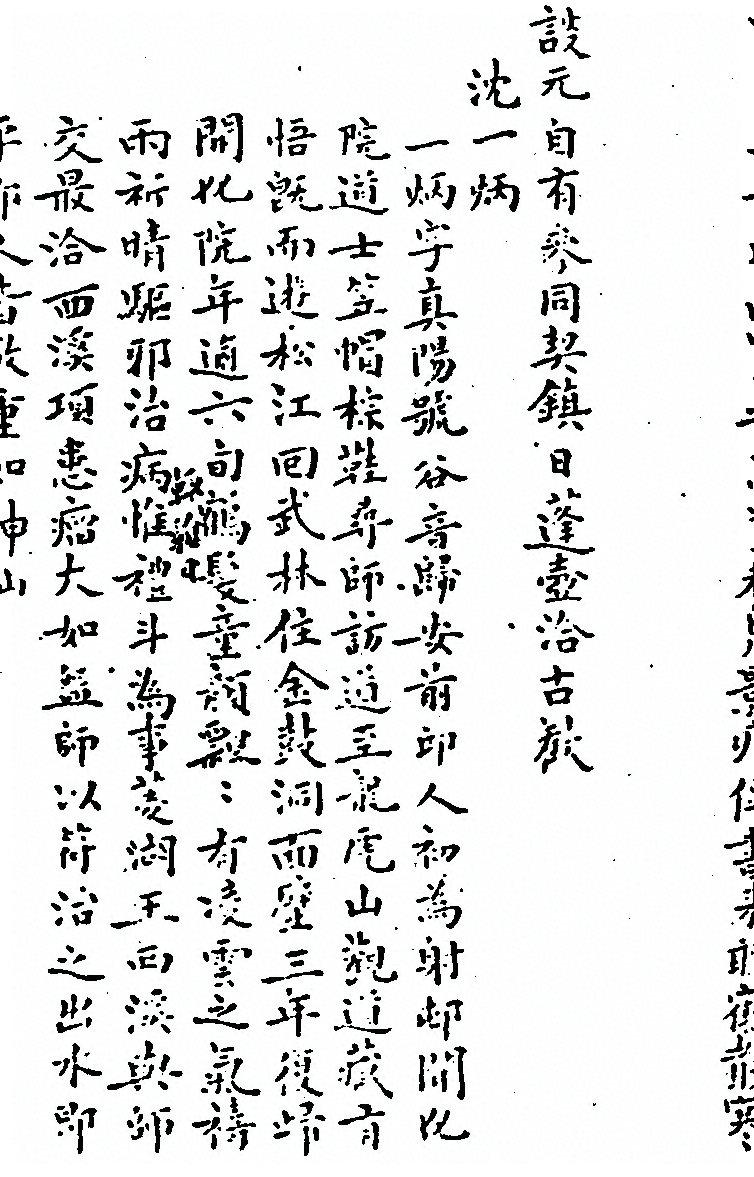 談元自有參同契鎮日蓬壺洽古歡
沈一炳
一炳字真陽號谷音歸安前邱人初為射邨開化
院道士笠帽棕鞋尋師訪道至龍虎山觀道藏有
悟既而遊松江回武林住金鼓洞面壁三年復歸
開化院年逾六旬鶴髮童顏飄〻有凌雲之氣禱
雨祈晴驅邪治病惟禮斗為事菱湖王西溪與師
交最洽西溪項患瘤大如盆師以符治之出水即
平邱人皆敬重如神山